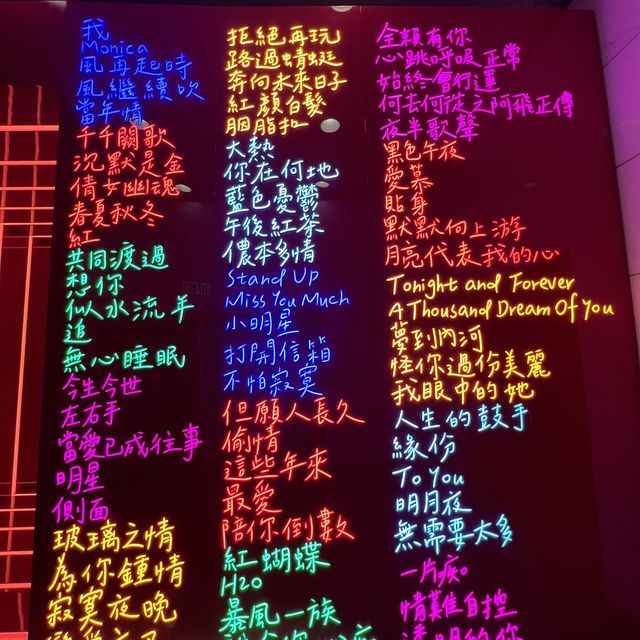 我
Monica
風再起時
風繼續吹
當年情
千千闕歌
沉默是金
倩女幽魂
春夏秋冬
紅
共同渡過
想你
似水流年
追
無心睡眠
今生今世
左右手
當愛已成往事
明星
側面
玻璃之情
為你鍾情
寂寞夜晚
拒絕再玩
路過蜻蜓
奔向未來日子
紅顏白髮
胭脂扣
大熱
你在何地
藍色憂鬱
午後紅茶
儂本多情
Stand Up
Miss You Much
小明星
打開信箱
不怕寂寞
但願人長久
偷情
這些年來
最愛
陪你倒數
紅蝴蝶
H2O
暴風一族
全賴有你
心跳呼吸正常
始終會行運
何去何從之阿飛正傳
夜半歌聲
黑色午夜
愛慕
貼身
默默向上游
月亮代表我的心
Tonight and Forever
A Thousand Dream Of You
夢到內河
怪你過份美麗
我眼中的她
人生的鼓手
緣份
To You
明月夜
無需要太多
一片痴
情難自控